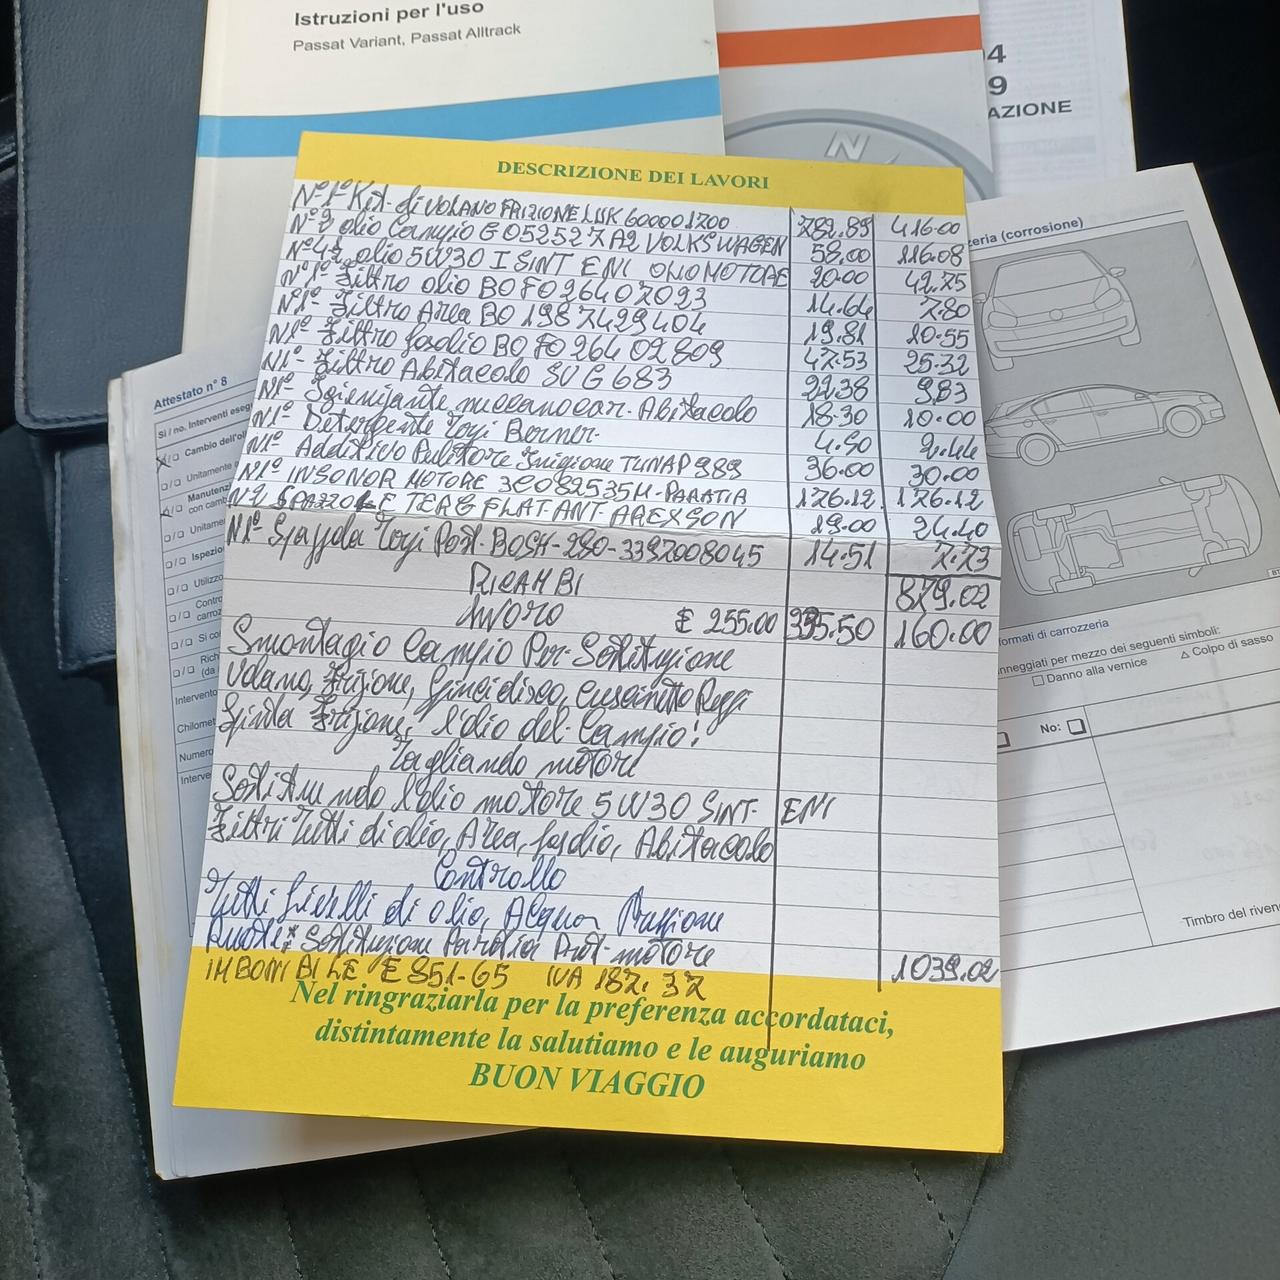 Istruzioni per l'uso
Passat Variant, Passat Alltrack
AZIONE
DESCRIZIONE DEI LAVORI
N°1° Kit di VOLANO FRIZIONE LUK 600001700 782.89 416.00
N°2 olio Campio G052527A2 VOLKSWAGEN 58.00 116.08
N°4½ olio 5W30 I SINT ENI OLIO MOTORE 20.00 42.75
N°1° Filtro olio BO FO 26407093 14.64 7.80
N1° Filtro Area BO 1987429404 19.81 10.55
N1° Filtro Gasolio BO FO 26402809 47.53 25.32
N1° Filtro Abitacolo SUG 683 22.38 9.83
N1° Igienizzante meccanocar. Abitacolo 18.30 10.00
N1° Detergente Vegi Berner 4.50 2.44
N1° Additivo Pulitore Inigione TUNAP 989 36.00 30.00
N1° INSONOR MOTORE 3C0825235M-PARATIA 176.12 176.12
N2 SPAZZOLE TERG FLAT ANT AREXSON 19.00 24.40
N1° Spazzola Tergi Post. BOSH-280-3397008045 14.51 7.73
RICAMBI 879.02
LAVORO € 255.00 395.50 160.00
Smontagio Campio Per Sostituzione
Volano, Frizione, Spingidisco, Cuscinetto Reggi
Spinta Frizione, l'olio del Campio!
Tagliando motore
Sostituendo l'olio motore 5W30 SINT- ENI
Filtri Tutti di olio, Area, Gasolio, Abitacolo
Controllo
Tutti livelli di olio, Acqua, Pressione
Ruote: Sostituzione Paratia Prot. motore
IMBONIBILE € 851-65 IVA 187.37 1039.02
Nel ringraziarla per la preferenza accordataci,
distintamente la salutiamo e le auguriamo
BUON VIAGGIO
Attestato n° 8
Si / no. Interventi eseg
Cambio dell'ol
Unitamente
Manutenz
con camb
Unitam
Ispezio
Utilizzo
Contro
carroz
Si co
Rich
(da
Intervento
Chilomet
Numero
Interve
zeria (corrosione)
formati di carrozzeria
nneggiati per mezzo dei seguenti simboli:
☐ Danno alla vernice △ Colpo di sasso
No: ☐
Timbro del riven